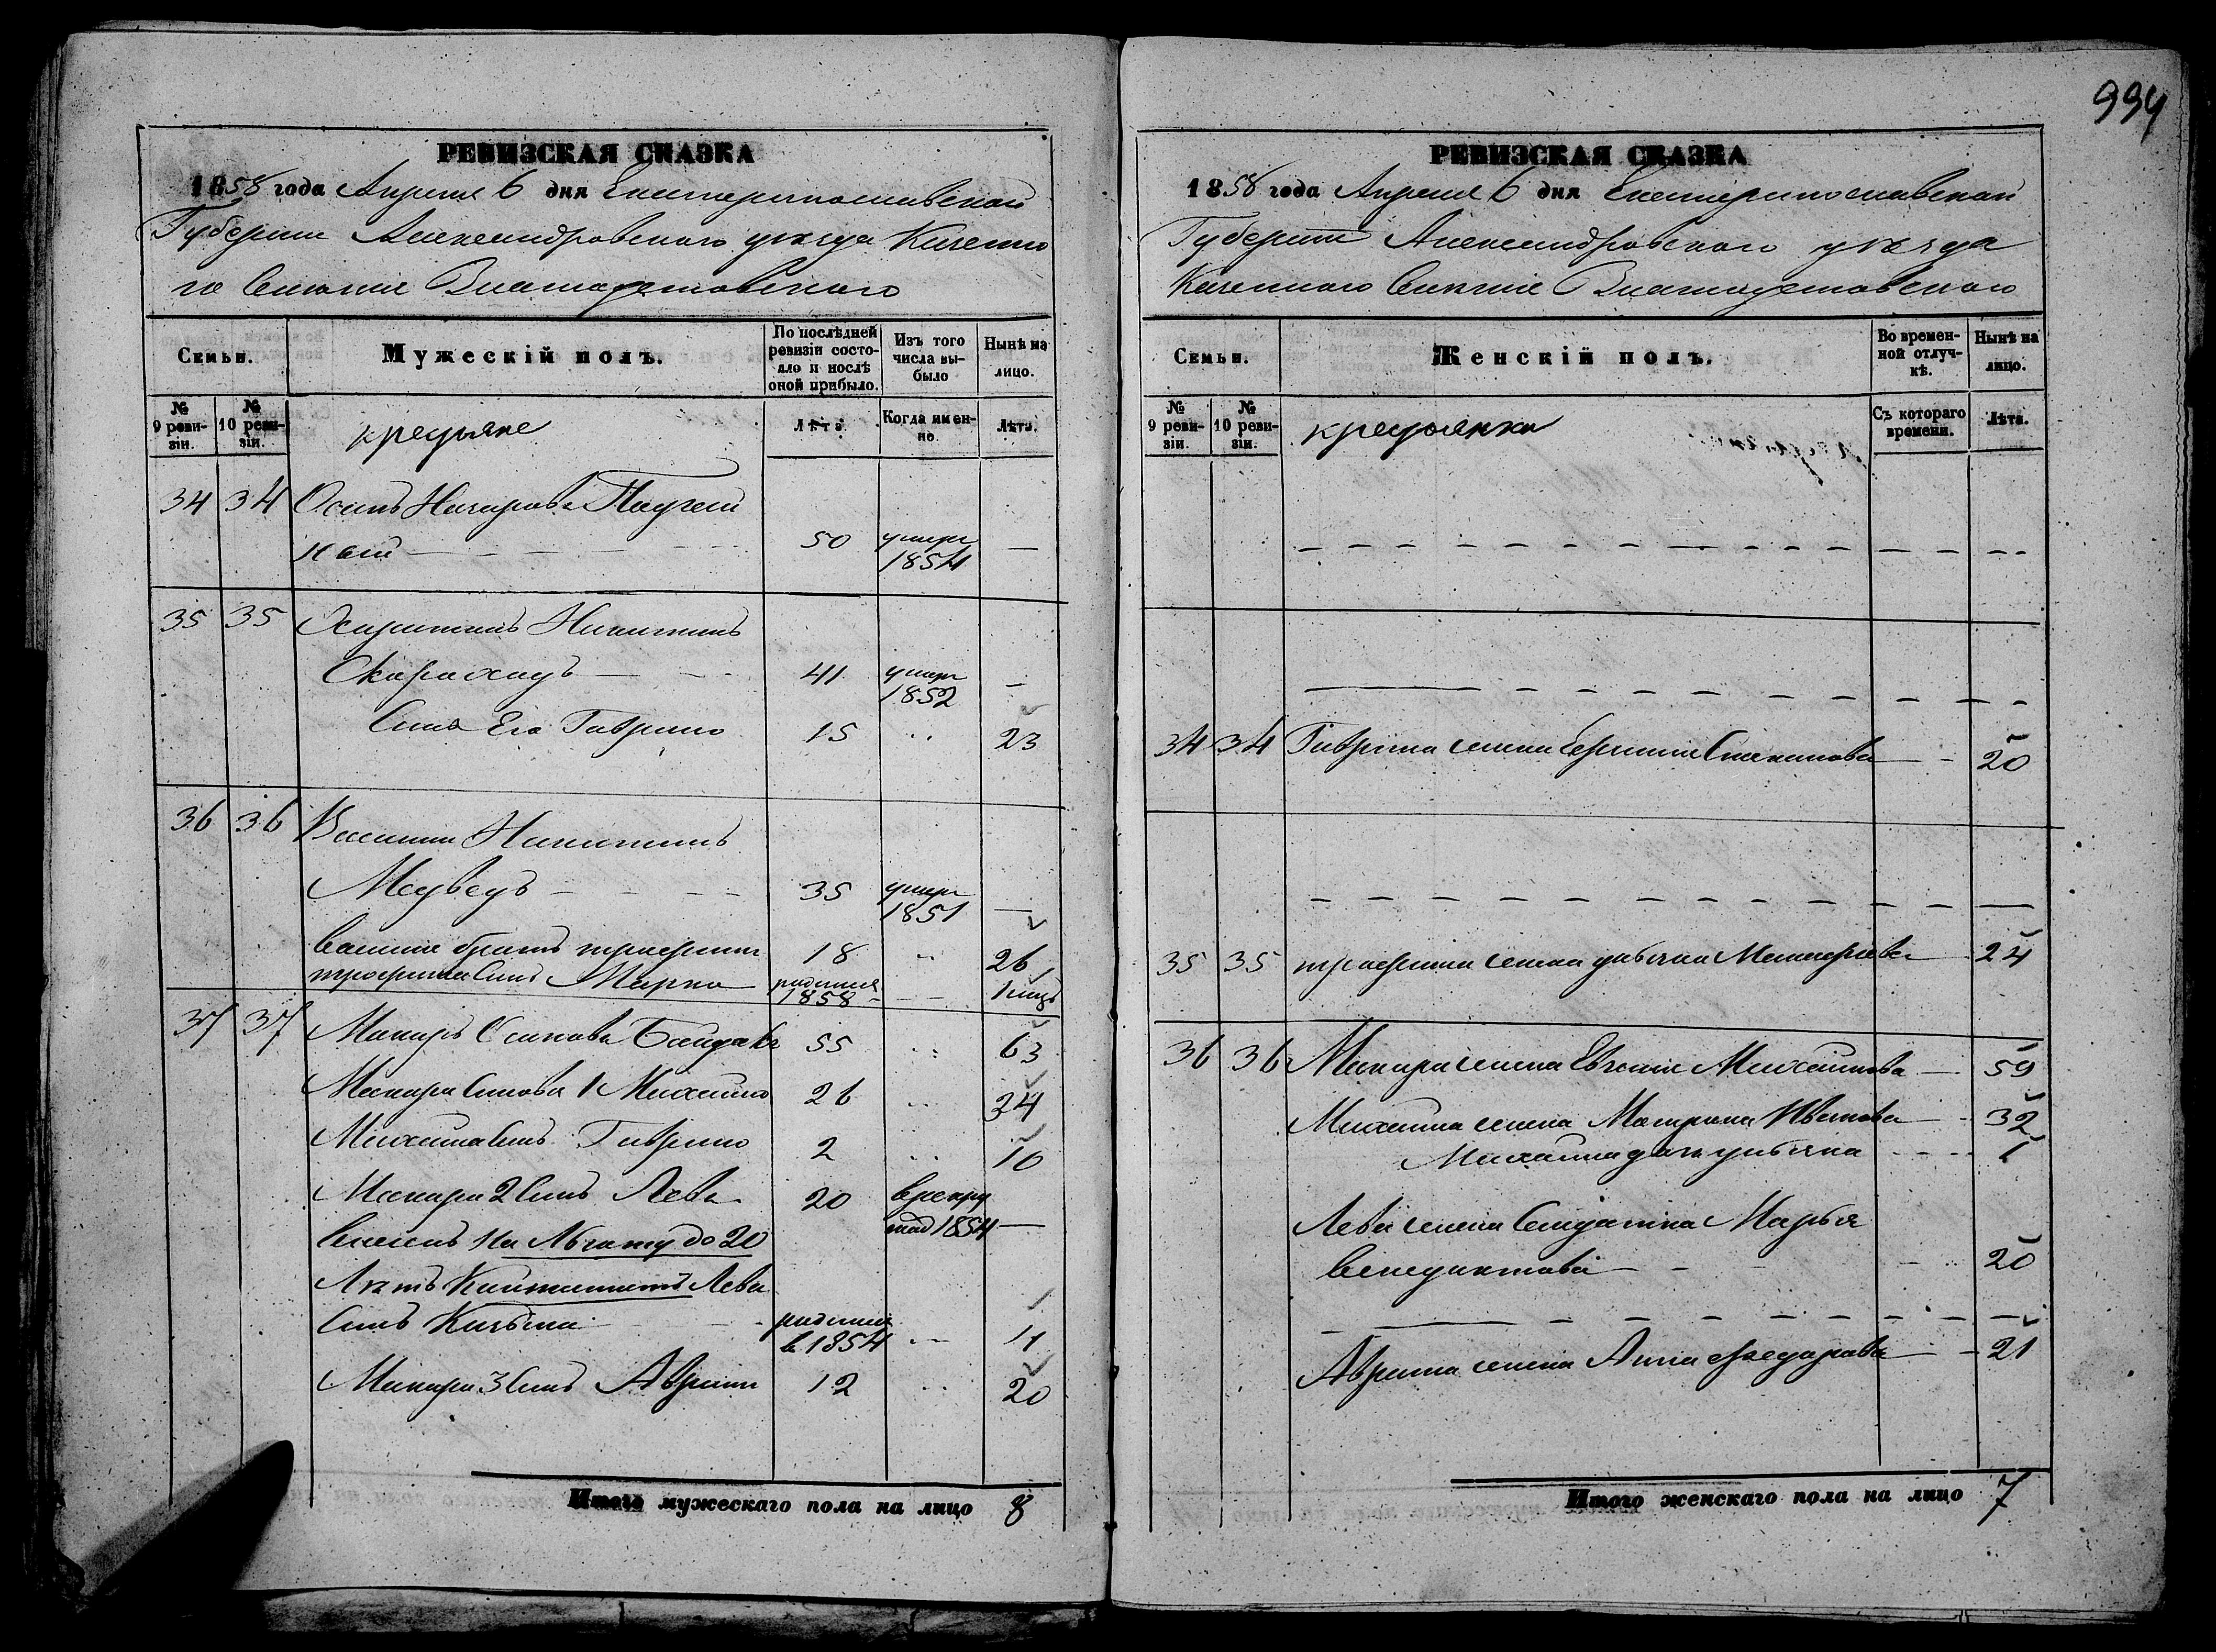 994
РЕВИЗСКАЯ СКАЗКА
1858 года Апреля 6 дня Екатеринославской
Губернии Александровского уѣзда Казенна
го Селенія
Семьи.
Мужескій полъ.
По послѣдней ревизіи состояло и послѣ оной прибыло.
Изъ того числа выбыло
Нынѣ на лицо.
№ 9 ревизіи.
№ 10 ревизіи.
крестьяне
Лѣта.
Когда именно.
Лѣта.
34 34 Осипъ Назаровъ
50 умеръ 1854 —
35 35 Харитонъ Никитинъ
Скороходъ — 41 умеръ 1852 —
Сынъ Его Гаврило 15 .. 23
36 36 Василий Никитинъ
Медведъ — 35 умеръ 1851 —
Василия братъ трофимъ 18 .. 26
трофима Сынъ Марко родился 1858 — 1 мцъ
37 37 Макаръ Осиповъ Байдакъ 55 .. 63
Макара Сыновья 1 Михайло 26 .. 34
Михайла Сынъ Гаврило 2 .. 10
Макара 2 Сынъ Лева 20 в рекру 1854 —
до 20
Лѣтъ Лева
Сынъ Кузьма — родился в 1854 ..
Макара 3 Сынъ Аврамъ 12 .. 20
Итого мужескаго пола на лицо 8
РЕВИЗСКАЯ СКАЗКА
1858 года Апреля 6 дня Екатеринославской
Губернии Александровского уѣзда
Казенного Селенія
Семьи.
Женскій полъ.
Во временной отлучкѣ.
Нынѣ на лицо.
№ 9 ревизіи.
№ 10 ревизіи.
крестьянки
Съ котораго времени.
Лѣта.
34 34 Гаврила жена Степанова — 20
35 35 трофима жена — 24
36 36 Макара жена Евгения Михайлова — 59
Михайла жена Матрона Иванова — 32
Михайла дочь — 1
Лева жена Солдатка Марья
— 20
Аврама жена Анна Федорова — 21
Итого женскаго пола на лицо 7